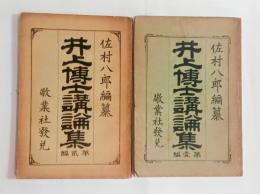 佐村八郎編纂
井上博士講論集
第貳編
敬業社發兌
佐村八郎編纂
井上博士講論集
第壹編
敬業社發兌